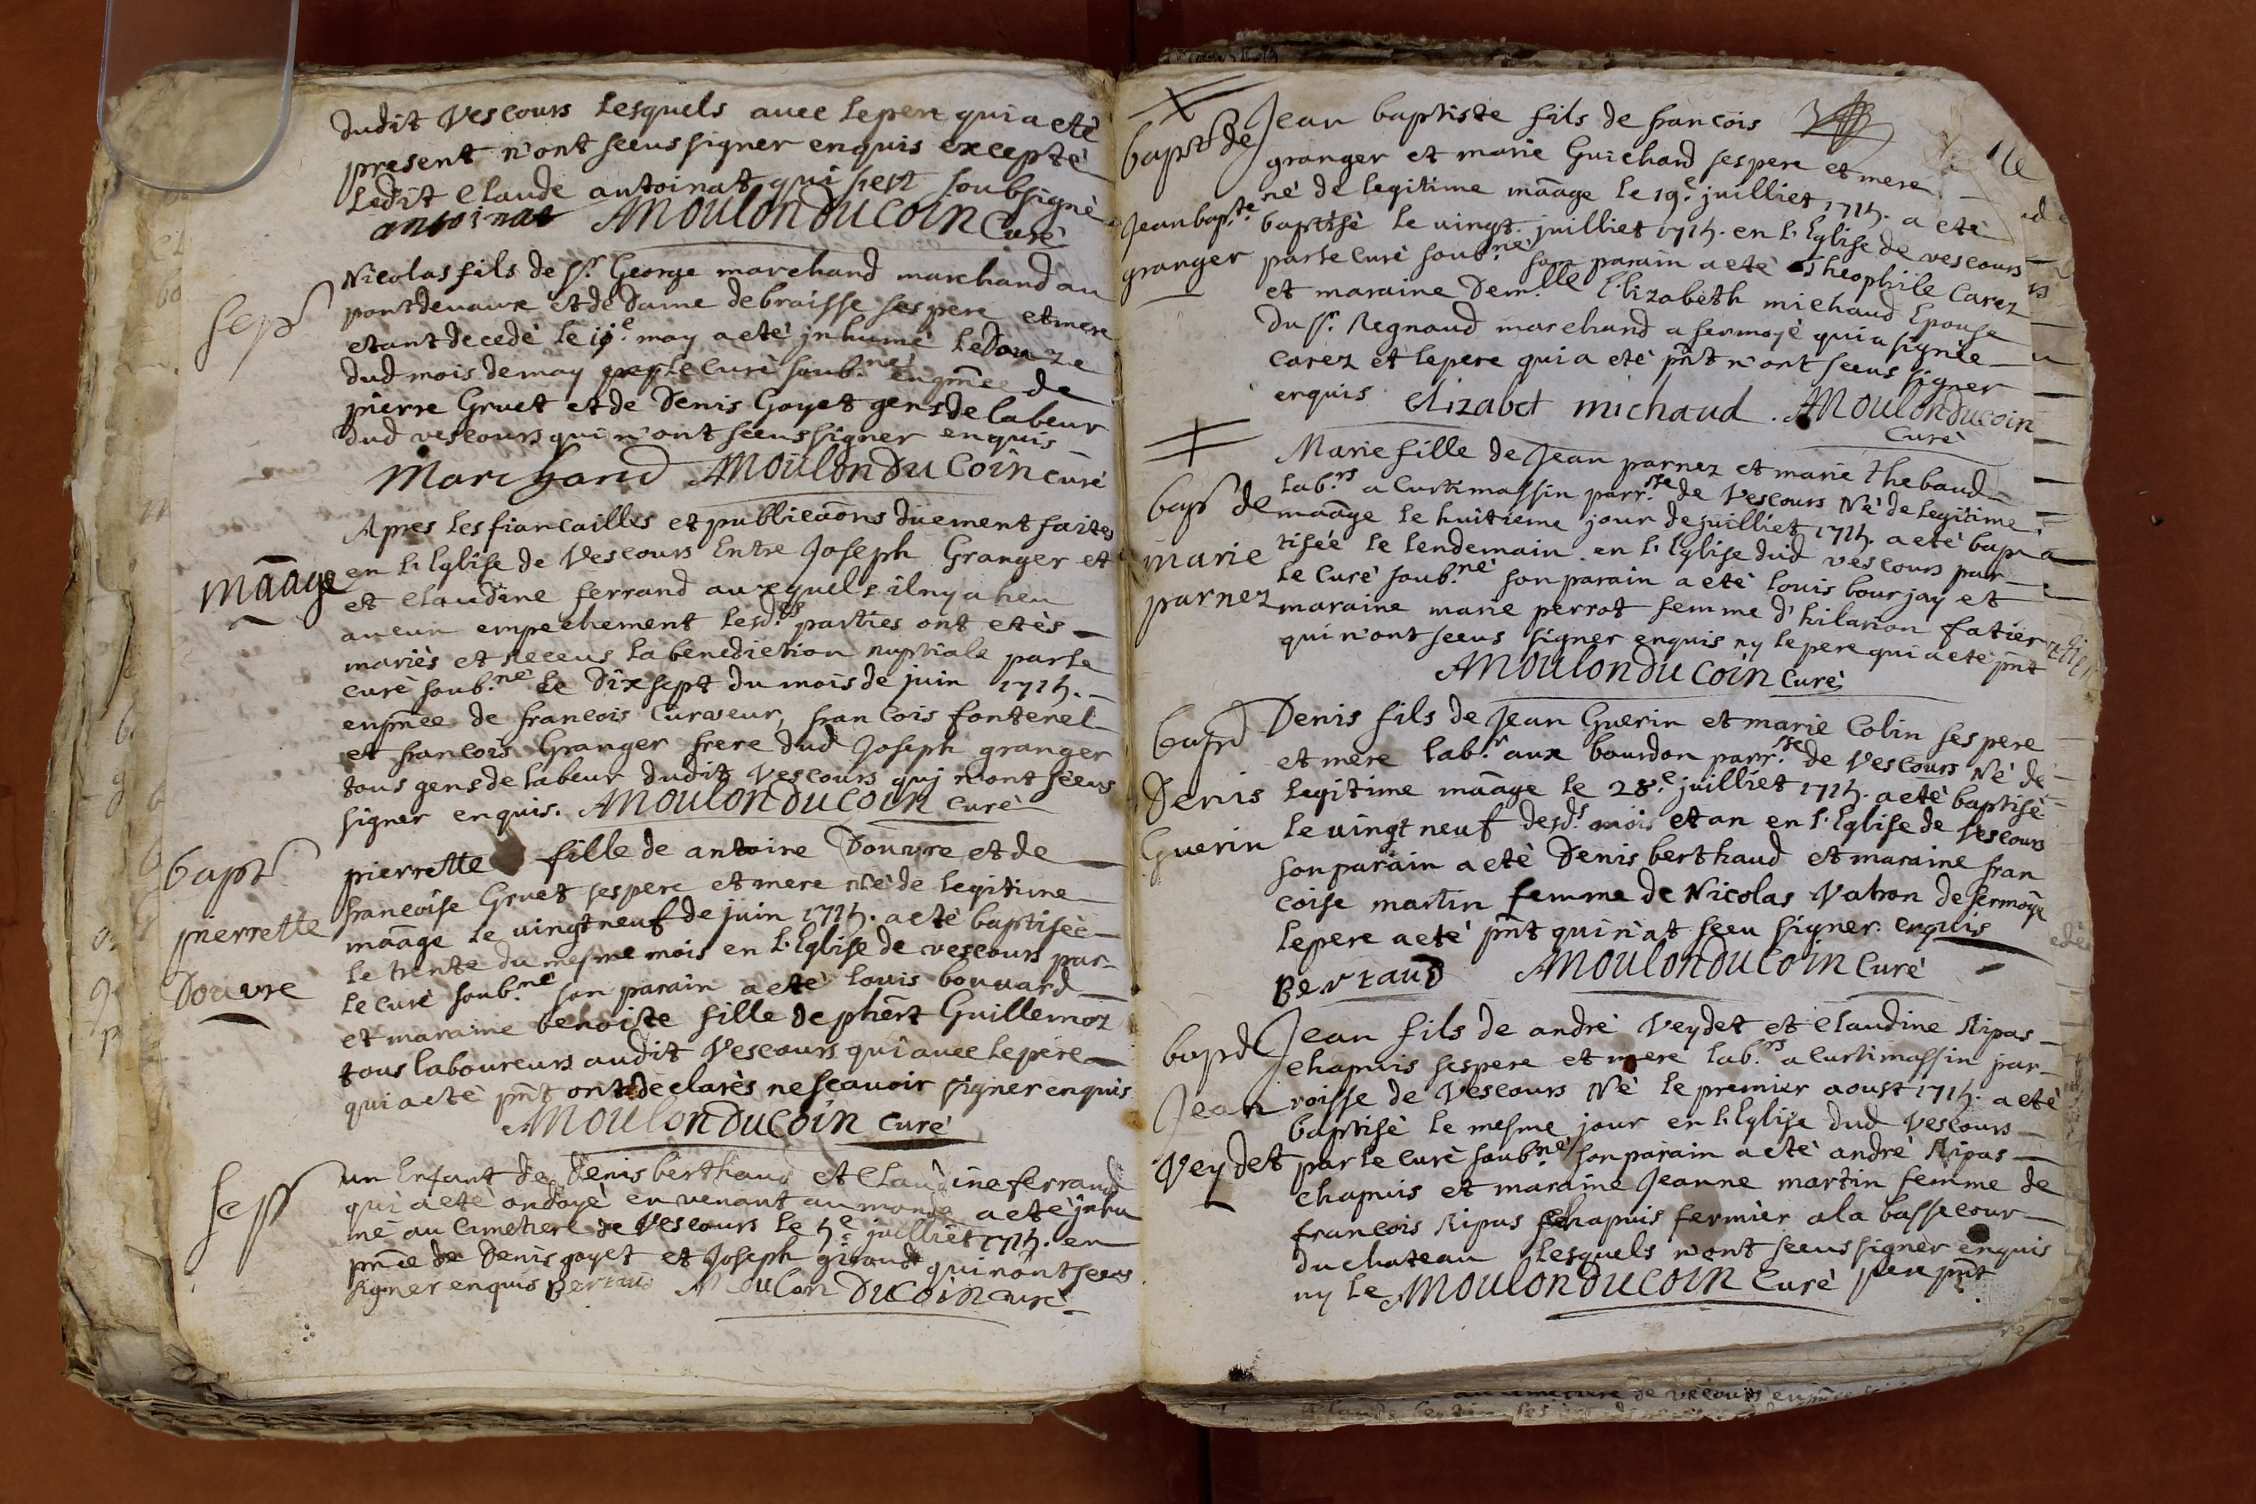 dudit Vescours Lesquels avec Le pere qui a eté
present n'ont sceus signer enquis excepté
Ledit Claude antoinat qui s'est soubsigné
antoinat AMoulonDuCoin Curé
sep
Nicolas fils de sr. George marchand marchand au
pontdevaux et de Dame debraisse ses pere et mere
etant decedé le 11e. may a eté jnhumé Le Douze
dud mois de may par Le Curé soub.né en pn̄ce de
pierre Gruet et de Denis Goyet gens de labeur
dud vescours qui n'ont sceus signer enquis
Marchand AMoulonDuCoin Curé
māage
Apres Les fiancailles et publicāons duement faites
en L'Eglise de Vescours Entre Joseph Granger et
et Claudine ferrand auxquels il ny a heu
aucun empechement Lesd.es parties ont etés
mariés et Receus La benediction nuptiale par Le
Curé soub.né Le Dix sept du mois de juin 1715.
en pn̄ce de francois Curveur, francois fontenel
et francois Granger frere dud Joseph granger
tous gens de labeur dudit Vescours qui n'ont sceus
signer enquis. AMoulonDuCoin Curé
bapt
pierrette
Douvre
pierrette fille de antoine Douvre et de
francoise Gruet ses pere et mere née de legitime
māage le vingt neuf de juin 1715. a eté baptisée
le trente du mesme mois en L'Eglise de vescours par
Le Curé soub.né son parain a eté Louis bouvard
et maraine benoiste fille de phēt Guillemoz
tous laboureurs audit Vescours qui avec Le pere
qui a eté pn̄t ont declarés ne scavoir signer enquis
AMoulonDuCoin Curé
sep
un Enfant de Denis berthaud et Claudine ferrand
qui a eté ondoyé en venant au monde a eté jnhu
mé au Cimetiere de Vescours Le 5.e juilliet 1715. en
pn̄ce de Denis goyet et Joseph giraud qui n'ont sceus
signer enquis Bertaud AMoulonDuCoin Curé
bapt de
Jean bap.te
granger
Jean baptiste fils de francois
granger et marie Guichard ses pere et mere
né de legitime māage le 19.e juilliet 1715. a eté
baptisé Le vingt juilliet 1715. en L'Eglise de vescours
par Le Curé soub.né son parain a eté Theophile Carez
et maraine Dem.lle Elizabeth michaud Epouse
du sr. Regnaud marchand a sermoyé qui a signée
Carez et Le pere qui a eté pn̄t n'ont sceus signer
enquis elizabet michaud. AMoulonDuCoin
Curé
bap de
marie
parnez
Marie fille de Jean parnez et marie thebaud
lab.rs a Curtimassin parr.sse de Vescours Né de legitime
māage le huitieme jour de juilliet 1715. a eté bap
tisée Le Lendemain en L'Eglise dud vescours par
Le Curé soub.né son parain a eté Louis bourjay et
maraine marie perrot femme d'hilarion fatier
qui n'ont sceus signer enquis ny Le pere qui a eté pn̄t
AMoulonDuCoin Curé
bapd
Denis
Guerin
Denis fils de Jean Guerin et marie Colin ses pere
et mere lab.r aux bourdon parr.sse de Vescours Né de
Legitime māage Le 28.e juilliet 1715. a eté baptisé
Le vingt neuf desd.s mois et an en L'Eglise de Vescours
son parain a eté Denis berthaud et maraine fran
coise martin femme de Nicolas Vatron de sermoye
Le pere a eté pn̄t qui n'at sceu signer enquis
Bertaud AMoulonDuCoin Curé
bapd
Jean
Veydet
Jean fils de andré Veydet et Claudine Ripas
chapuis ses pere et mere lab.rs a Curtimassin par
roisse de Vescours Né Le premier aoust 1715. a eté
baptisé Le mesme jour en L'Eglise dud Vescours
par Le Curé soub.né son parain a eté andré Ripas
chapuis et maraine Jeanne martin femme de
francois Ripas chapuis fermier a la basse cour
du chateau Lesquels n'ont sceus signer enquis
ny Le AMoulonDuCoin Curé pere pn̄t